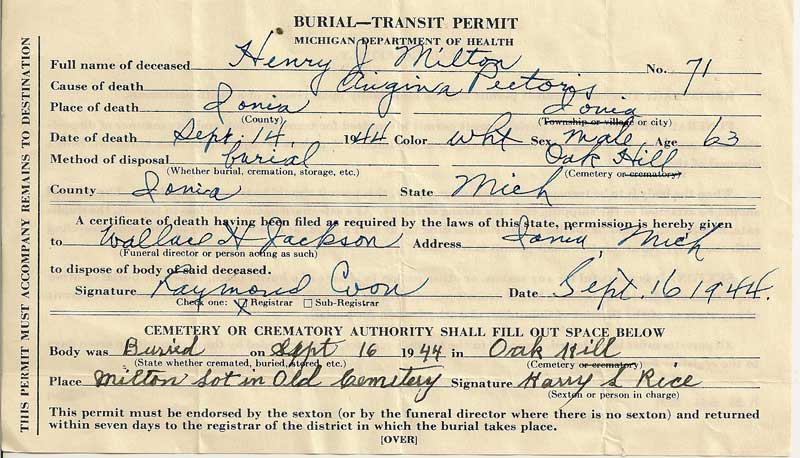 BURIAL—TRANSIT PERMIT
MICHIGAN DEPARTMENT OF HEALTH
Full name of deceased Henry J Milton No. 71
Cause of death Angina Pectoris
Place of death Ionia Ionia
(County) (Township or village or city)
Date of death Sept. 14, 1944 Color wht Sex Male Age 63
Method of disposal burial Oak Hill
(Whether burial, cremation, storage, etc.) (Cemetery or crematory)
County Ionia State Mich
A certificate of death having been filed as required by the laws of this state, permission is hereby given
to Wallace H Jackson Address Ionia, Mich
(Funeral director or person acting as such)
to dispose of body of said deceased.
Signature Raymond Coon Date Sept. 16 1944.
Check one: Registrar Sub-Registrar
CEMETERY OR CREMATORY AUTHORITY SHALL FILL OUT SPACE BELOW
Body was Buried on Sept 16 1944 in Oak Hill
(State whether cremated, buried, stored, etc.) (Cemetery or crematory)
Place Milton Lot in Old Cemetery Signature Harry L Rice
(Sexton or person in charge)
This permit must be endorsed by the sexton (or by the funeral director where there is no sexton) and returned
within seven days to the registrar of the district in which the burial takes place.
[OVER]
THIS PERMIT MUST ACCOMPANY REMAINS TO DESTINATION